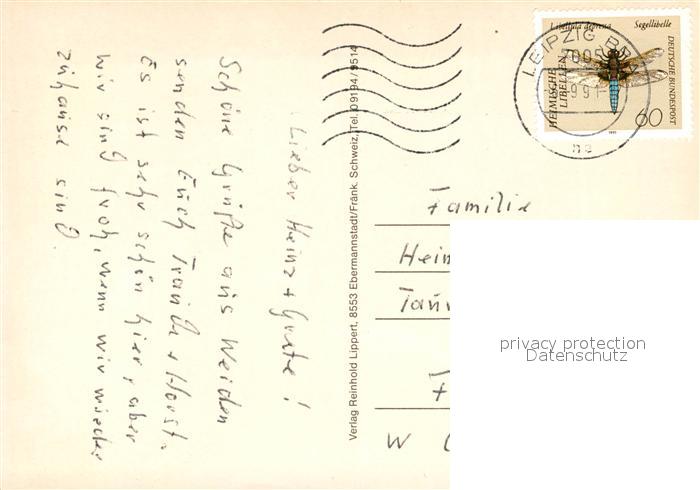 Lieber Heinz + Grete!
Schöne Grüße aus Weiden
senden Euch Traudl + Horst.
Es ist sehr schön hier, aber
wir sind froh, wenn wir wieder
zuhause sind.
Verlag Reinhold Lippert, 8553 Ebermannstadt/Fränk. Schweiz, Tel. 09194/9514
Libellula depressa Segellibelle
HEIMISCHE
LIBELLEN
DEUTSCHE BUNDESPOST
60
LEIPZIG
7005
Familie
Hein
W
privacy protection
Datenschutz